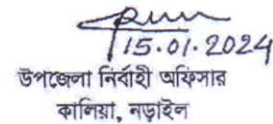 15.01.2024
উপজেলা নির্বাহী অফিসার
কালিয়া, নড়াইল